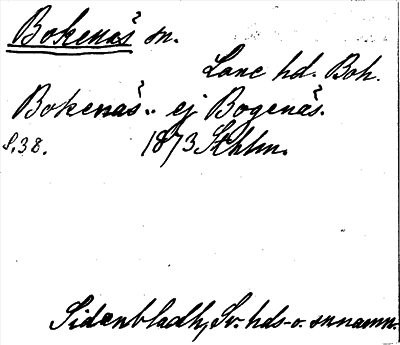 Bokenäs sn.
Lane hd. Boh.
Bokenäs.. ej Bogenäs.
S. 38. 1873 Sthlm.
Sidenbladh, Sv. hds- o. snnamn.